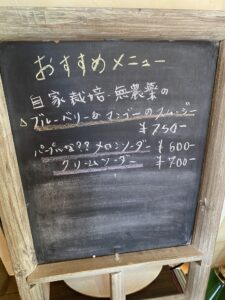 おすすめメニュー
自家栽培・無農薬の
ブルーベリー&マンゴーのスムージー
¥750-
パープルな?? メロンソーダー ¥600-
クリームソーダー ¥700-